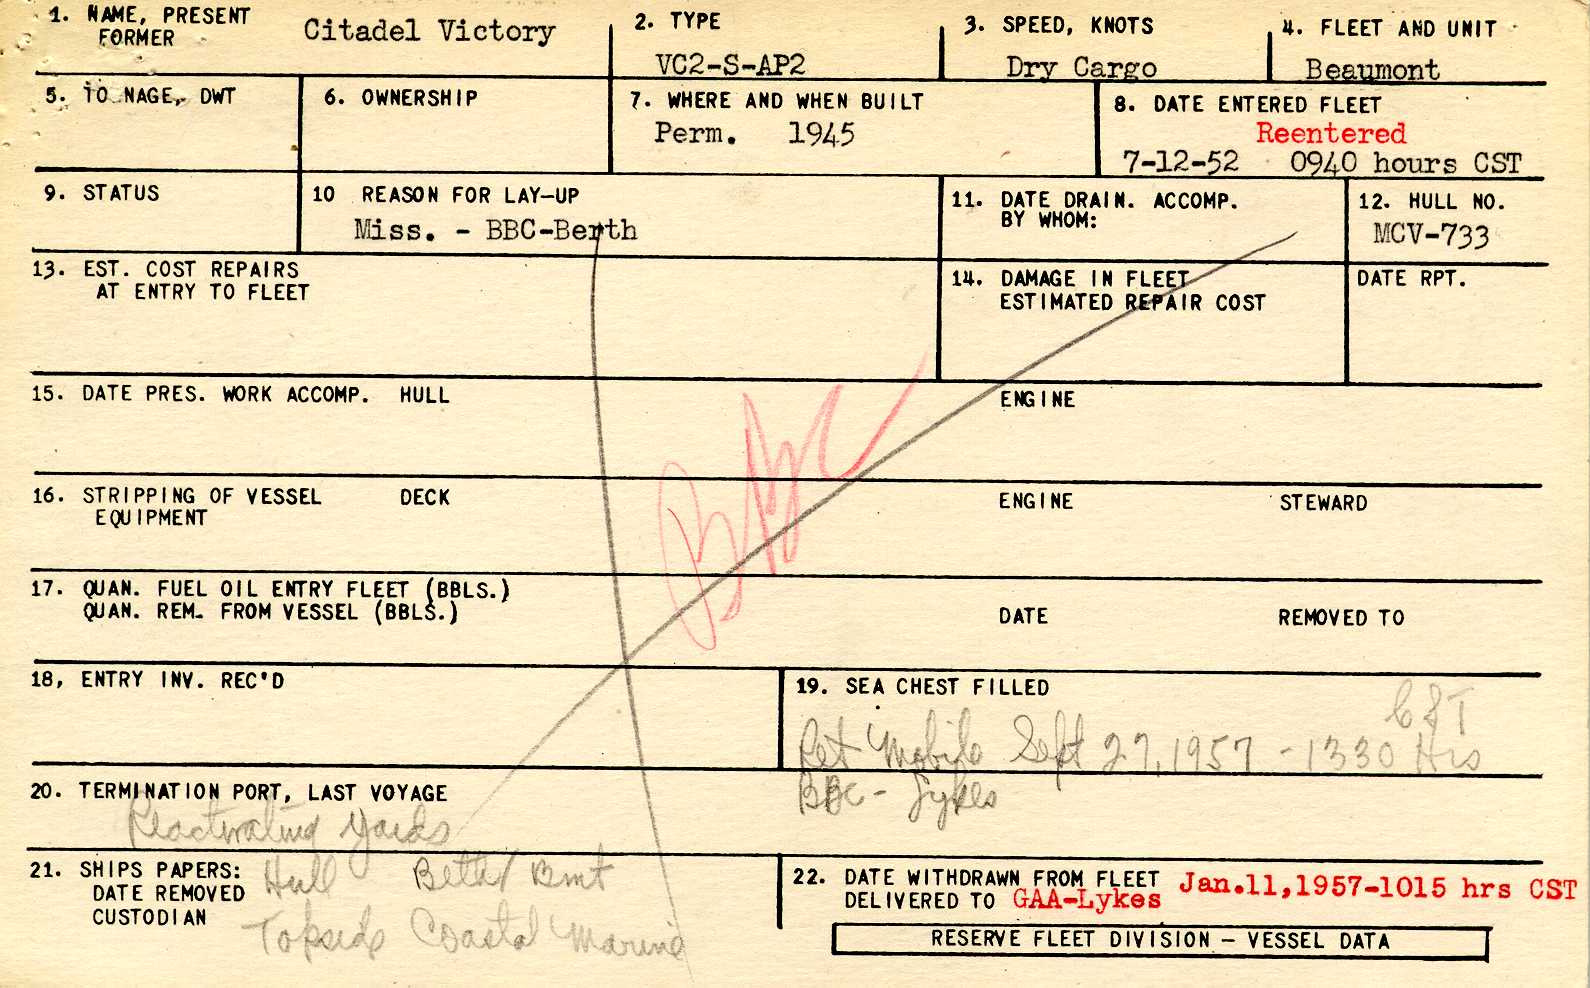 1. NAME, PRESENT
FORMER
Citadel Victory
2. TYPE
VC2-S-AP2
3. SPEED, KNOTS
Dry Cargo
4. FLEET AND UNIT
Beaumont
5. TO NAGE, DWT
6. OWNERSHIP
7. WHERE AND WHEN BUILT
Perm. 1945
8. DATE ENTERED FLEET
Reentered
7-12-52 0940 hours CST
9. STATUS
10 REASON FOR LAY-UP
Miss. - BBC-Berth
11. DATE DRAIN. ACCOMP.
BY WHOM:
12. HULL NO.
MCV-733
13. EST. COST REPAIRS
AT ENTRY TO FLEET
14. DAMAGE IN FLEET
ESTIMATED REPAIR COST
DATE RPT.
15. DATE PRES. WORK ACCOMP. HULL
ENGINE
BBC
16. STRIPPING OF VESSEL DECK
EQUIPMENT
ENGINE
STEWARD
17. QUAN. FUEL OIL ENTRY FLEET (BBLS.)
QUAN. REM. FROM VESSEL (BBLS.)
DATE
REMOVED TO
18, ENTRY INV. REC'D
19. SEA CHEST FILLED
CST
Ret Mobile Sept 27, 1957 - 1330 Hrs
BBC - Lykes
20. TERMINATION PORT, LAST VOYAGE
Reactivating Yards
21. SHIPS PAPERS:
DATE REMOVED
CUSTODIAN
Hull Beth/Bmt
Topside Coastal Marine
22. DATE WITHDRAWN FROM FLEET Jan.11,1957-1015 hrs CST
DELIVERED TO GAA-Lykes
RESERVE FLEET DIVISION - VESSEL DATA